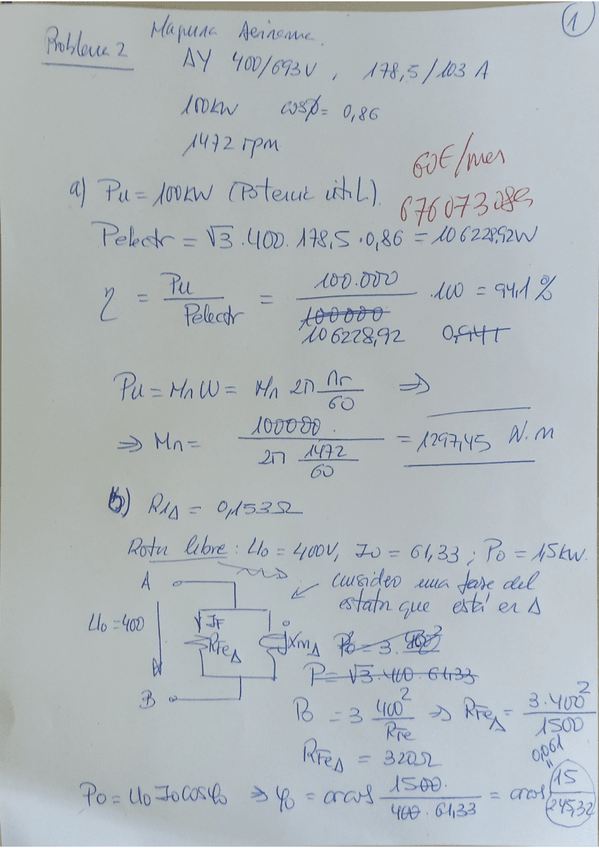 1
Problema 2
Maquina Asincrona.
ΔY 400/693V, 178,5/103 A
100kW cosφ = 0,86
1472 rpm
60€/mes
a) Pu = 100kW (Potencia útil).
Pelectr = √3 . 400 . 178,5 . 0,86 = 106228,92W
η = Pu / Pelectr = 100.000 / 106228,92 . 100 = 94,1 %
Pu = Mn W = Mn 2π nr/60 ⇒
⇒ Mn = 100000 / (2π 1472/60) = 1297,45 N.m
b) R1Δ = 0,153Ω
Rotor libre: U0 = 400V, I0 = 61,33 ; P0 = 1,5kW.
considero una fase del
estator que está en Δ
A
U0 = 400
IF
RFeΔ
jXmΔ
B
P0 = 3 . 400²
P = √3 . 400 . 61,33
P0 = 3 400²/RFe ⇒ RFeΔ = 3.400²/1500
RFeΔ = 320Ω
0,061
P0 = U0 I0 cosφ0 ⇒ φ0 = arcos 1500 / (400 . 61,33) = arcos 15 / 245,32